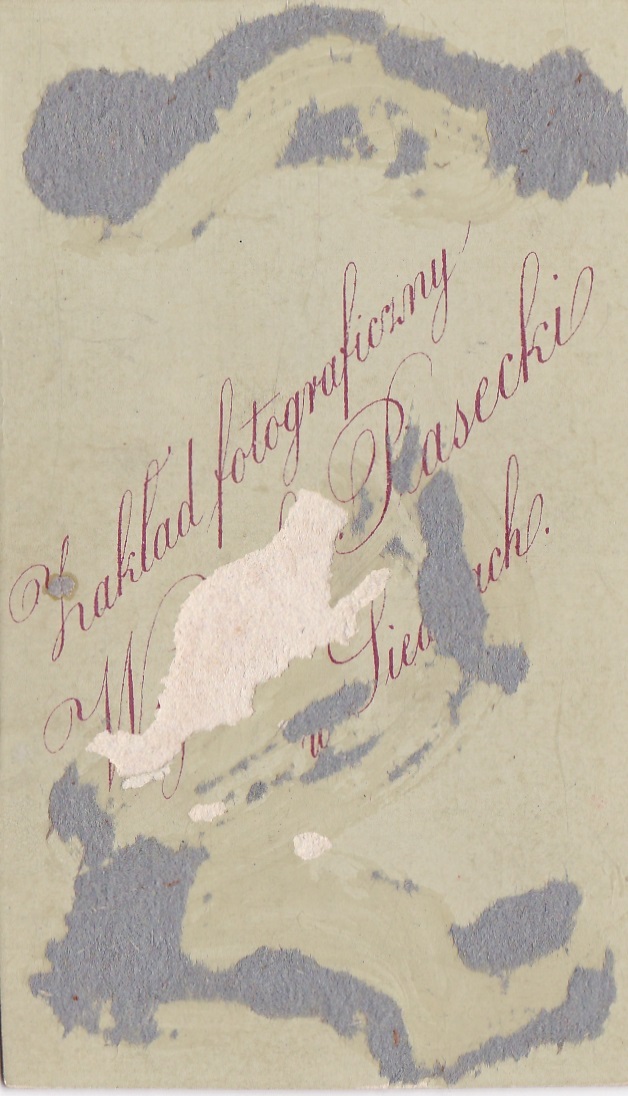 Zakład fotograficzny
Piasecki
w Siedlcach.